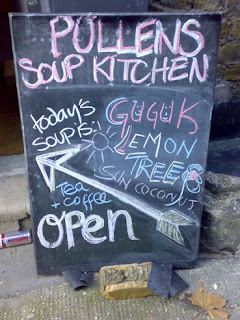 PULLENS
SOUP KITCHEN
today's
SOUP IS:
GUGUK
LEMON
TREES
SUN COCONUT
TEA
+ COFFEE
OPEN